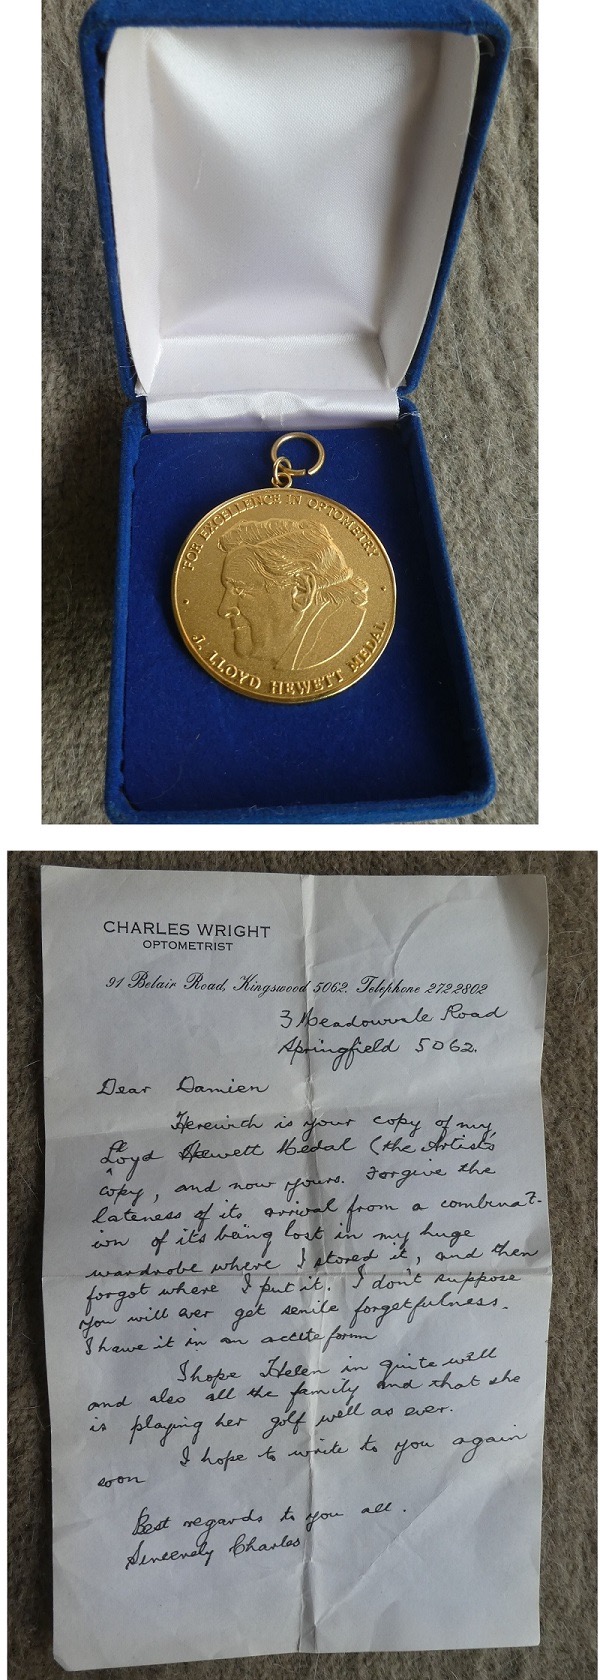 FOR EXCELLENCE IN OPTOMETRY
J. LLOYD HEWETT MEDAL
CHARLES WRIGHT
OPTOMETRIST
91 Belair Road, Kingswood 5062. Telephone 272 2802
3 Meadowvale Road
Springfield 5062.
Dear Damien
Herewith is your copy of my
Lloyd Hewett Medal (the Artist's
copy, and now yours. Forgive the
lateness of its arrival from a combinat-
ion of its being lost in my huge
wardrobe where I stored it, and then
forgot where I put it. I don't suppose
you will ever get senile forgetfulness.
I have it in an accute form
I hope Helen in quite well
and also all the family and that she
is playing her golf well as ever.
I hope to write to you again
soon
Best regards to you all.
Sincerely Charles